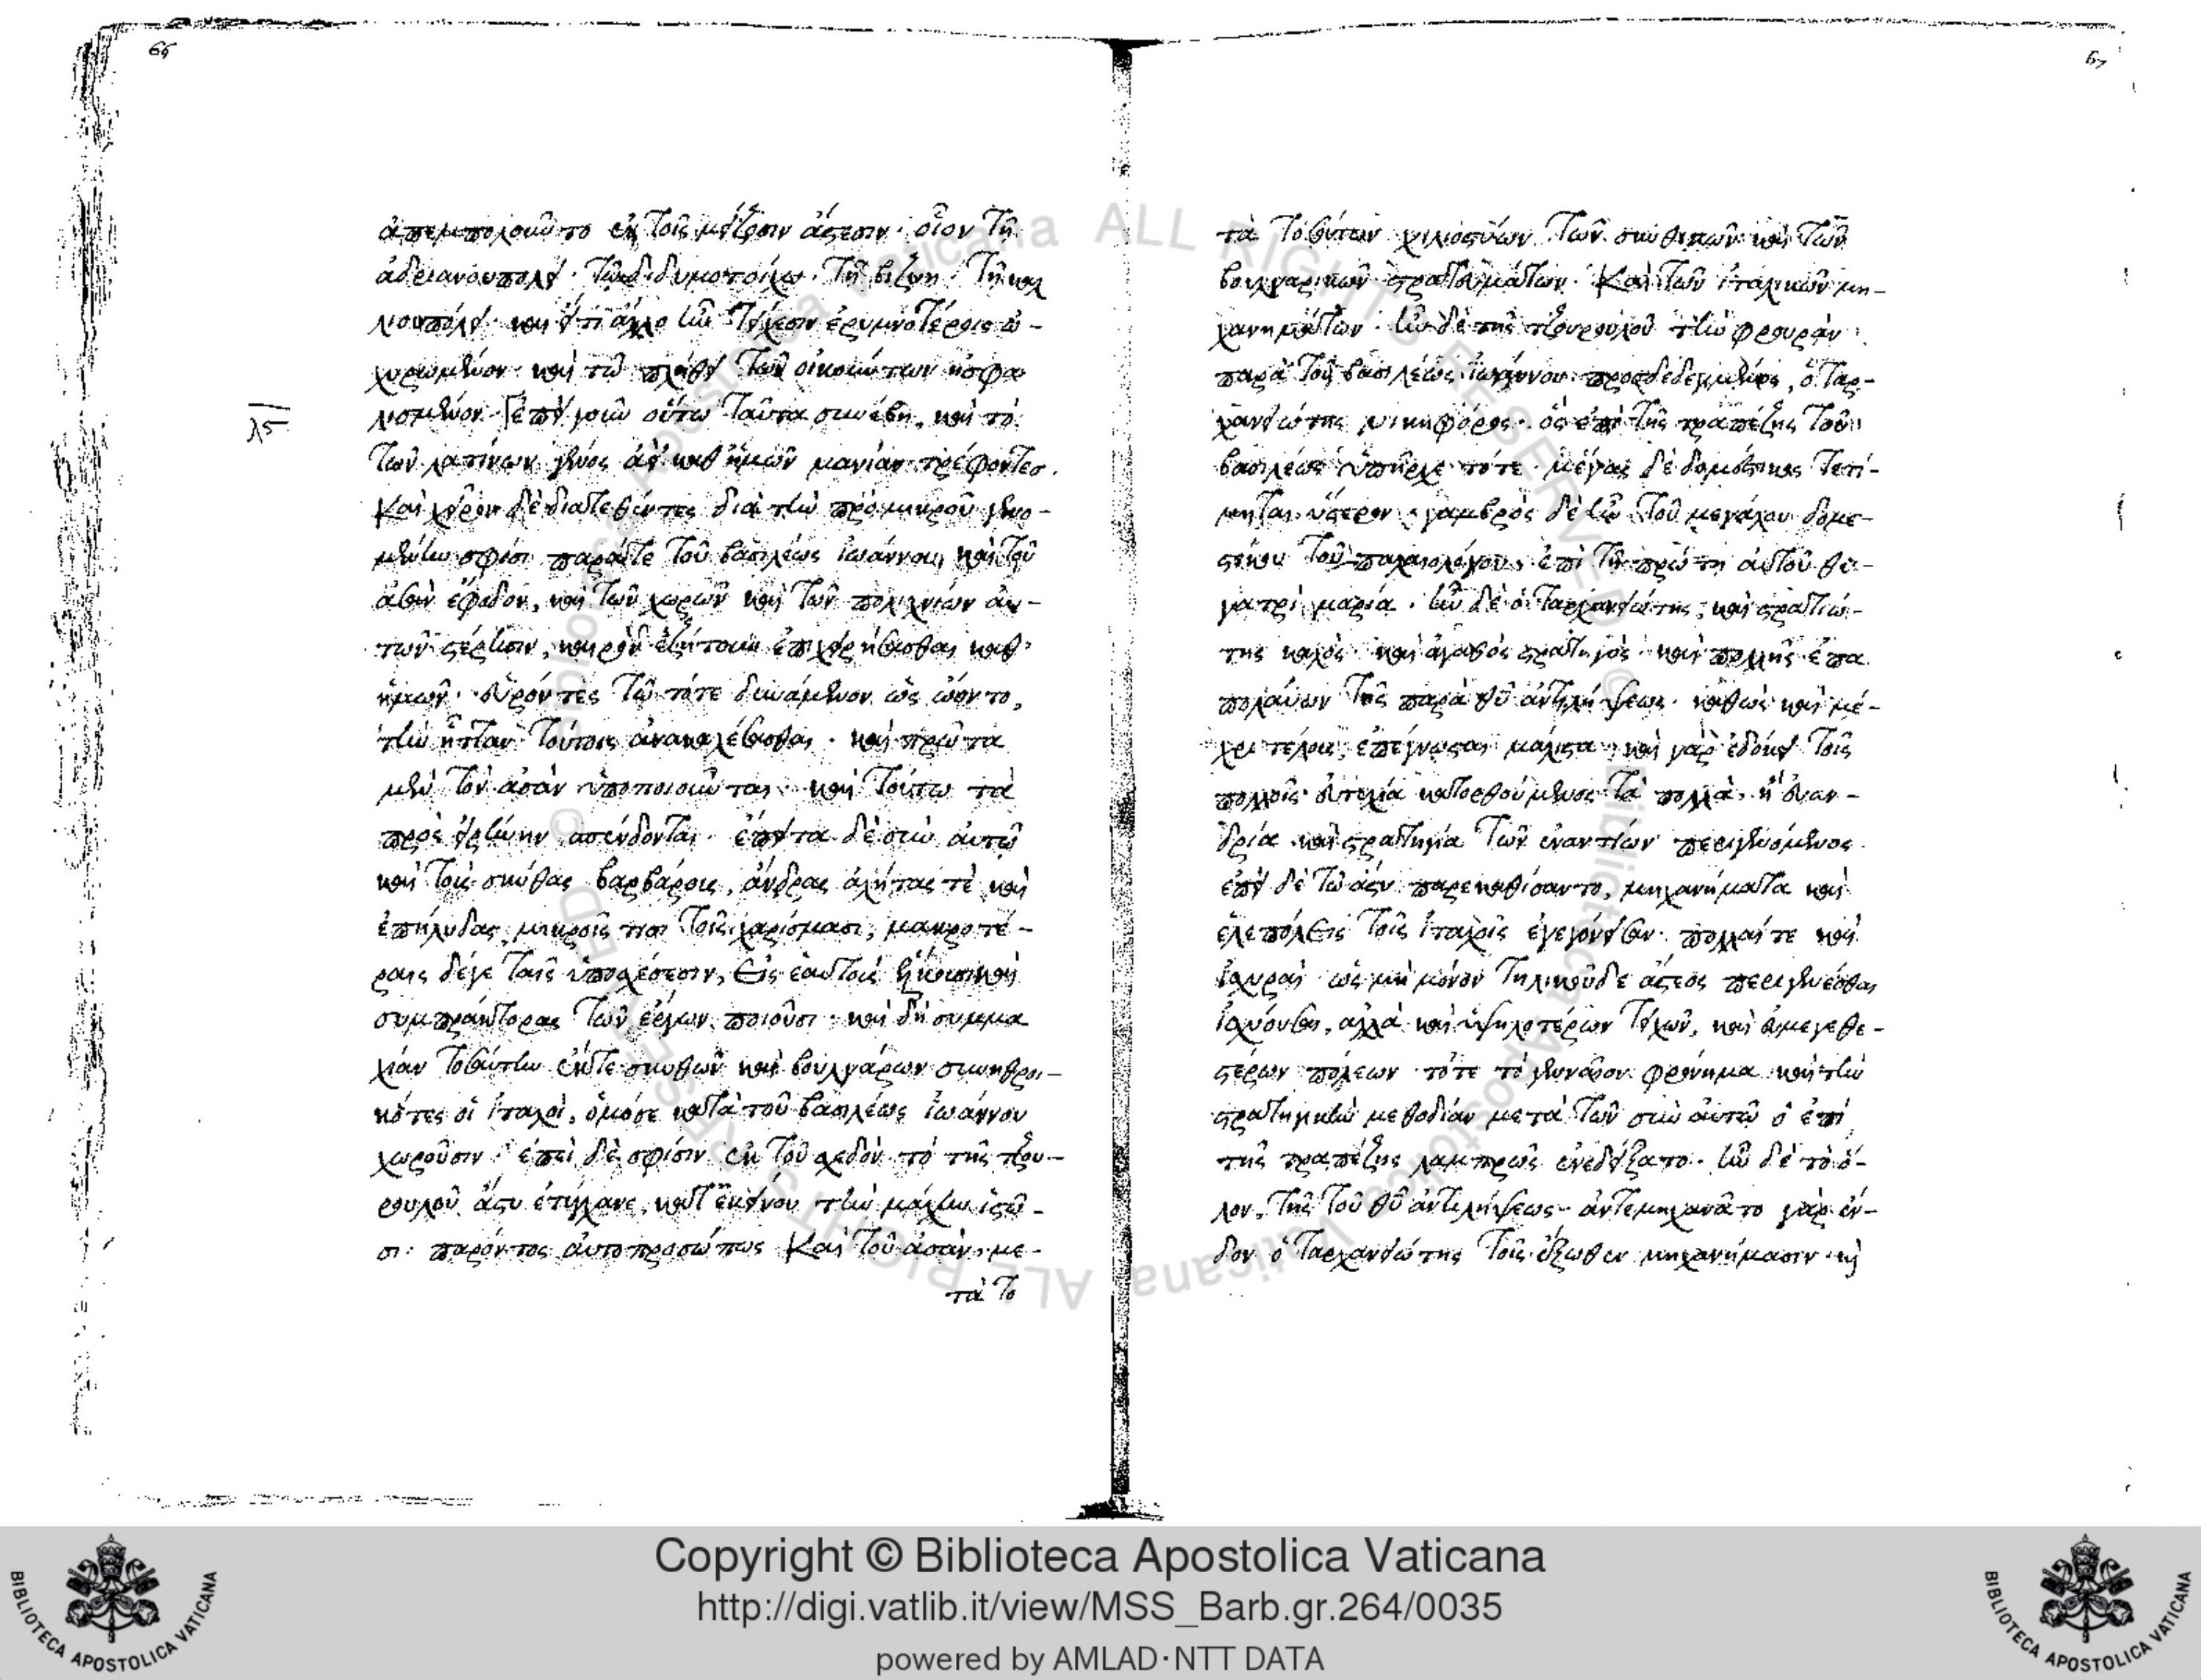 66
ἀπεμπολοῦντο ἐν τοῖς μείζοσιν ἄστεσιν· οἷον τῇ
ἀδριανουπόλει· τῷ διδυμοτοίχῳ· τῇ βιζύῃ· τῇ καλ
λιουπόλει· καὶ εἴ τι ἄλλο ἦν τείχεσιν ἐρυμνοτέροις ὠ-
χυρωμένον· καὶ τῷ πλήθει τῶν οἰκούντων ἠσφα
λισμένον· ἐπεὶ γοῦν οὕτω ταῦτα συνέβη, καὶ τὸ
λϛ
τῶν λατίνων γένος ἀεὶ καθ' ἡμῶν μανίαν τρέφοντες.
καὶ χεῖρον δὲ διατεθέντες διὰ τὴν πρὸ μικροῦ γενο-
μένην σφίσι παρά τε τοῦ βασιλέως ἰωάννου, καὶ τοῦ
ἀσὰν ἔφοδον, καὶ τῶν χωρῶν καὶ τῶν πολιχνίων αὐ-
τῶν στέρησιν, καιρὸν ἐζήτουν ἐπιχειρήσασθαι καθ'
ἡμῶν· εὑρόντες τῷ τότε δυνάμενον ὡς ᾤοντο,
τὴν ἧτταν τούτοις ἀνακαλέσασθαι. καὶ πρῶτα
μὲν τὸν ἀσὰν ὑποποιοῦνται· καὶ τούτῳ τὰ
πρὸς εἰρήνην σπένδονται. ἔπειτα δὲ σὺν αὐτῷ
καὶ τοὺς σκύθας βαρβάρους, ἄνδρας ἀλήτας τὲ καὶ
ἐπήλυδας, μικροῖς τισι τοῖς χαρίσμασι, μακροτέ-
ραις δέγε ταῖς ὑποσχέσεσιν, εἰς ἑαυτοὺς ἕλκουσι καὶ
συμπράκτορας τῶν ἔργων ποιοῦσι· καὶ δὴ συμμα
χίαν τοσαύτην ἔκ τε σκυθῶν καὶ βουλγάρων συνηθροι-
κότες οἱ ἰταλοὶ, ὁμόσε κατὰ τοῦ βασιλέως ἰωάννου
χωροῦσιν· ἐπεὶ δὲ σφίσιν ἐκ τοῦ σχεδὸν τὸ τῆς τζου-
ρουλοῦ ἄστυ ἐτύγχανε, κατ' ἐκείνου τὴν μάχην ἱστῶ-
σι· παρόντος αὐτοπροσώπως καὶ τοῦ ἀσὰν, με-
τὰ το
67
τὰ τοσούτων χιλιοστύων τῶν σκυθικῶν καὶ τῶν
βουλγαρικῶν στρατευμάτων. καὶ τῶν ἰταλικῶν μη-
χανημάτων· ἦν δὲ τῆς τζουρουλοῦ τὴν φρουρὰν
παρὰ τοῦ βασιλέως ἰωάννου προσδεδεγμένος, ὁ ταρ-
χανειώτης νικηφόρος· ὃς ἐπὶ τῆς τραπέζης τοῦ
βασιλέως ὑπῆρχε τότε· μέγας δὲ δομέστικος τετί-
μηται ὕστερον· γαμβρὸς δὲ ἦν τοῦ μεγάλου δομε-
στίκου τοῦ παλαιολόγου, ἐπὶ τῇ πρώτῃ αὐτοῦ θυ-
γατρὶ μαρία. ἦν δὲ ὁ ταρχανειώτης, καὶ στρατιώ-
της καλὸς· καὶ ἀγαθὸς στρατηγὸς· καὶ πολλῆς ἐπα
πολαύων τῆς παρὰ θυ ἀντιλήψεως. καθὼς καὶ μέ-
χρι τέλους ἐπέγνωσται μάλιστα· καὶ γὰρ ἐδόκει τοῖς
πολλοῖς εὐτυχία κατορθούμενος τὰ πολλὰ, ἢ εὐαν-
δρία καὶ στρατηγία τῶν ἐναντίων περιγενόμενος.
ἐπεὶ δὲ τῷ ἄστυ παρεκαθίσαντο, μηχανήματα καὶ
ἑλεπόλεις τοῖς ἰταλοῖς ἐγεγόνεισαν· πολλαί τε καὶ
ἰσχυραὶ ὡς μὴ μόνον τηλικοῦδε ἄστεος περιγενέσθαι
ἰσχύουσαι, ἀλλὰ καὶ ὑψηλοτέρων τειχῶν, καὶ εὐμεγεθε-
στέρων πόλεων· τότε τὸ γενναῖον φρόνημα καὶ τὴν
στρατηγικὴν μεθοδίαν μετὰ τῶν σὺν αὐτῷ ὁ ἐπὶ
τῆς τραπέζης λαμπρῶς ἐνεδείξατο· ἦν δὲ τὸ ὅ-
λον, τῆς τοῦ θυ ἀντιλήψεως· ἀντεμηχανᾶτο γὰρ ἔν-
δον ὁ ταρχανειώτης τοῖς ἔξωθεν μηχανήμασιν· καὶ
Copyright © Biblioteca Apostolica Vaticana
http://digi.vatlib.it/view/MSS_Barb.gr.264/0035
powered by AMLAD·NTT DATA